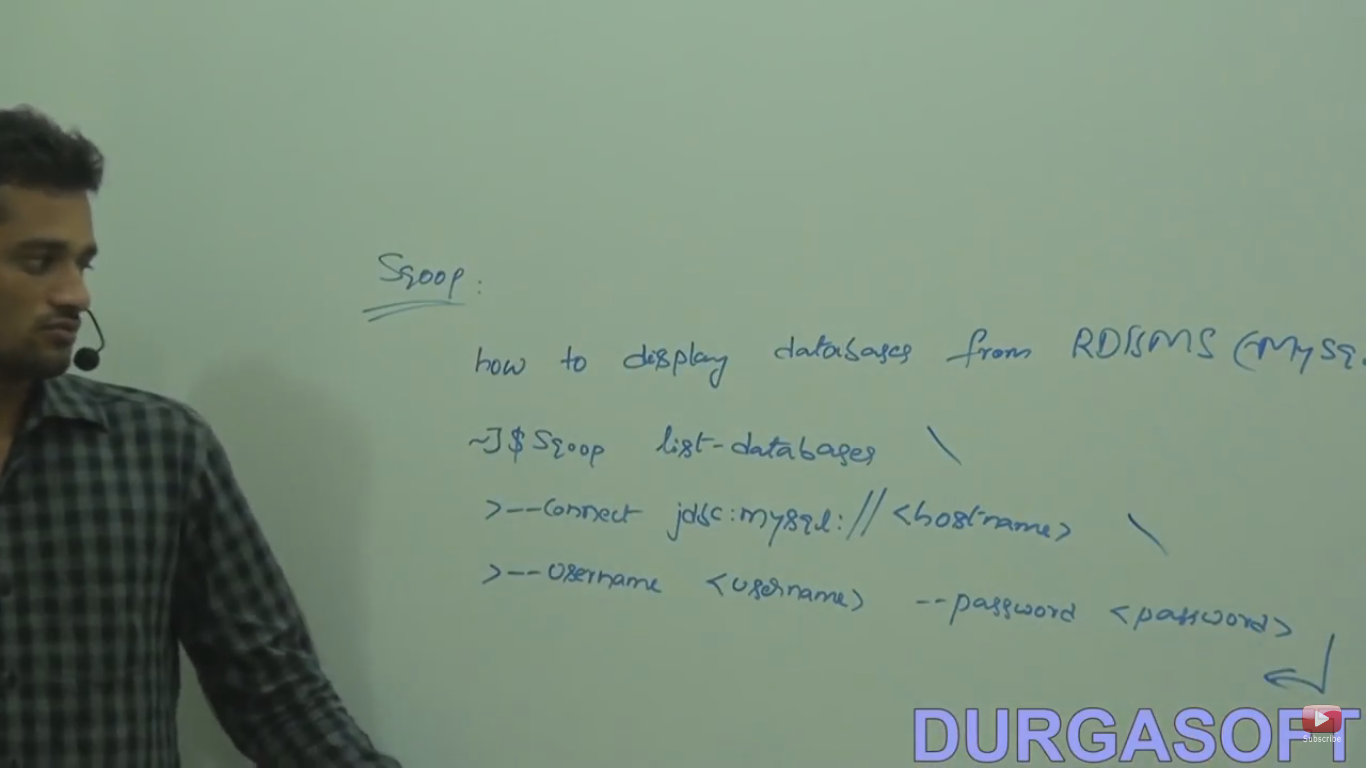 Sqoop:
how to display databases from RDBMS (MySq
~]$ Sqoop list-databases \
>--connect jdbc:mysql://<hostname> \
>--username <username> --password <password>
DURGASOFT
Subscribe